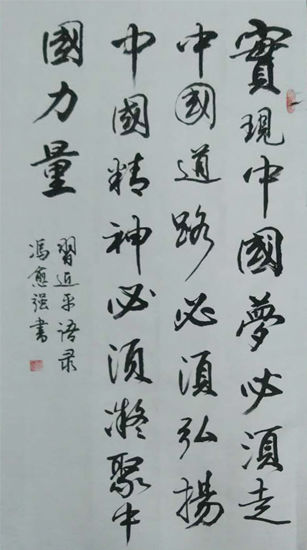 實現中國夢必須走
中國道路必須弘揚
中國精神必須凝聚中
國力量
習近平语录
冯愈强書